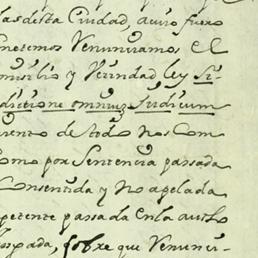 las desta Ciudad, cuio fuero
ometemos Renunciamos, el
omisilio y Vezindad ley Si
dictione omniuz Judicum
miento de todo nos Com
Como por Sentencia passada
Consentida y No apelada
petente passada en la autho
luzgada, sobre que Renunci-